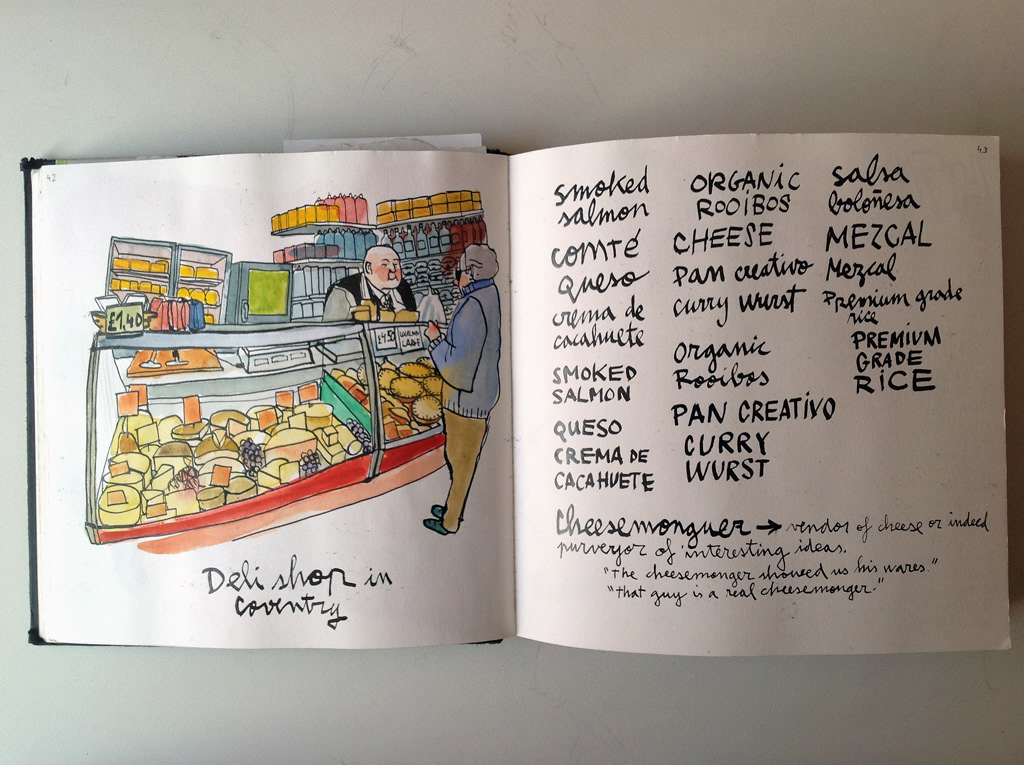 42
£1.40
£4.50
Deli shop in
coventry
43
smoked
salmon
comté
queso
crema de
cacahuete
SMOKED
SALMON
QUESO
CREMA DE
CACAHUETE
ORGANIC
ROOİBOS
CHEESE
Pan creativo
curry wurst
Organic
Rooibos
PAN CREATIVO
CURRY
WURST
salsa
boloñesa
MEZCAL
Mezcal
Premium grade
rice
PREMIUM
GRADE
RICE
Cheesemonguer → vendor of cheese or indeed
purveyor of interesting ideas.
"The cheesemonger showed us his wares."
"That guy is a real cheesemonger."